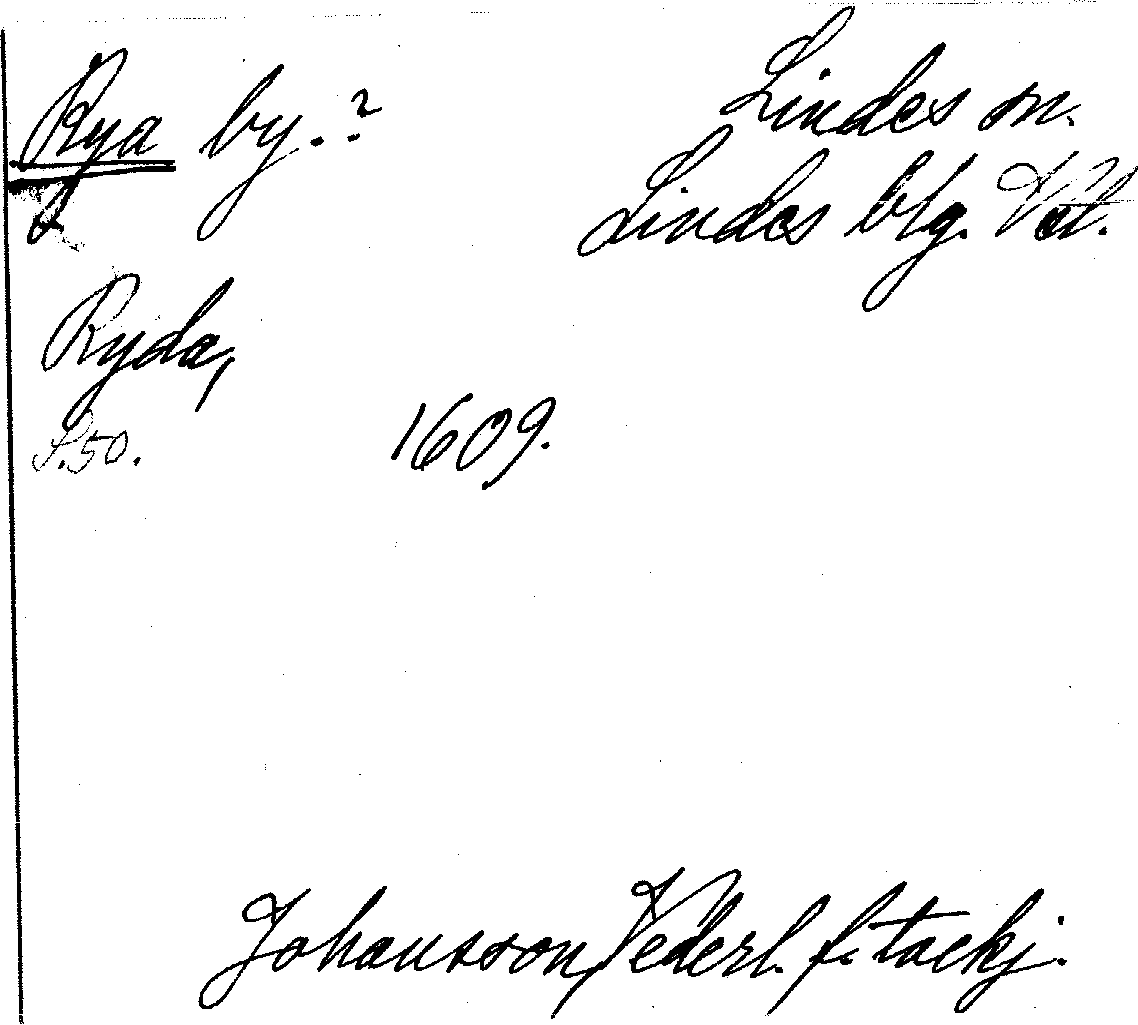 Rya by.?
Lindes sn.
Lindes blg. Vstm.
Ryda,
S. 50.
1609.
Johansson, Vederl. f. täckj.